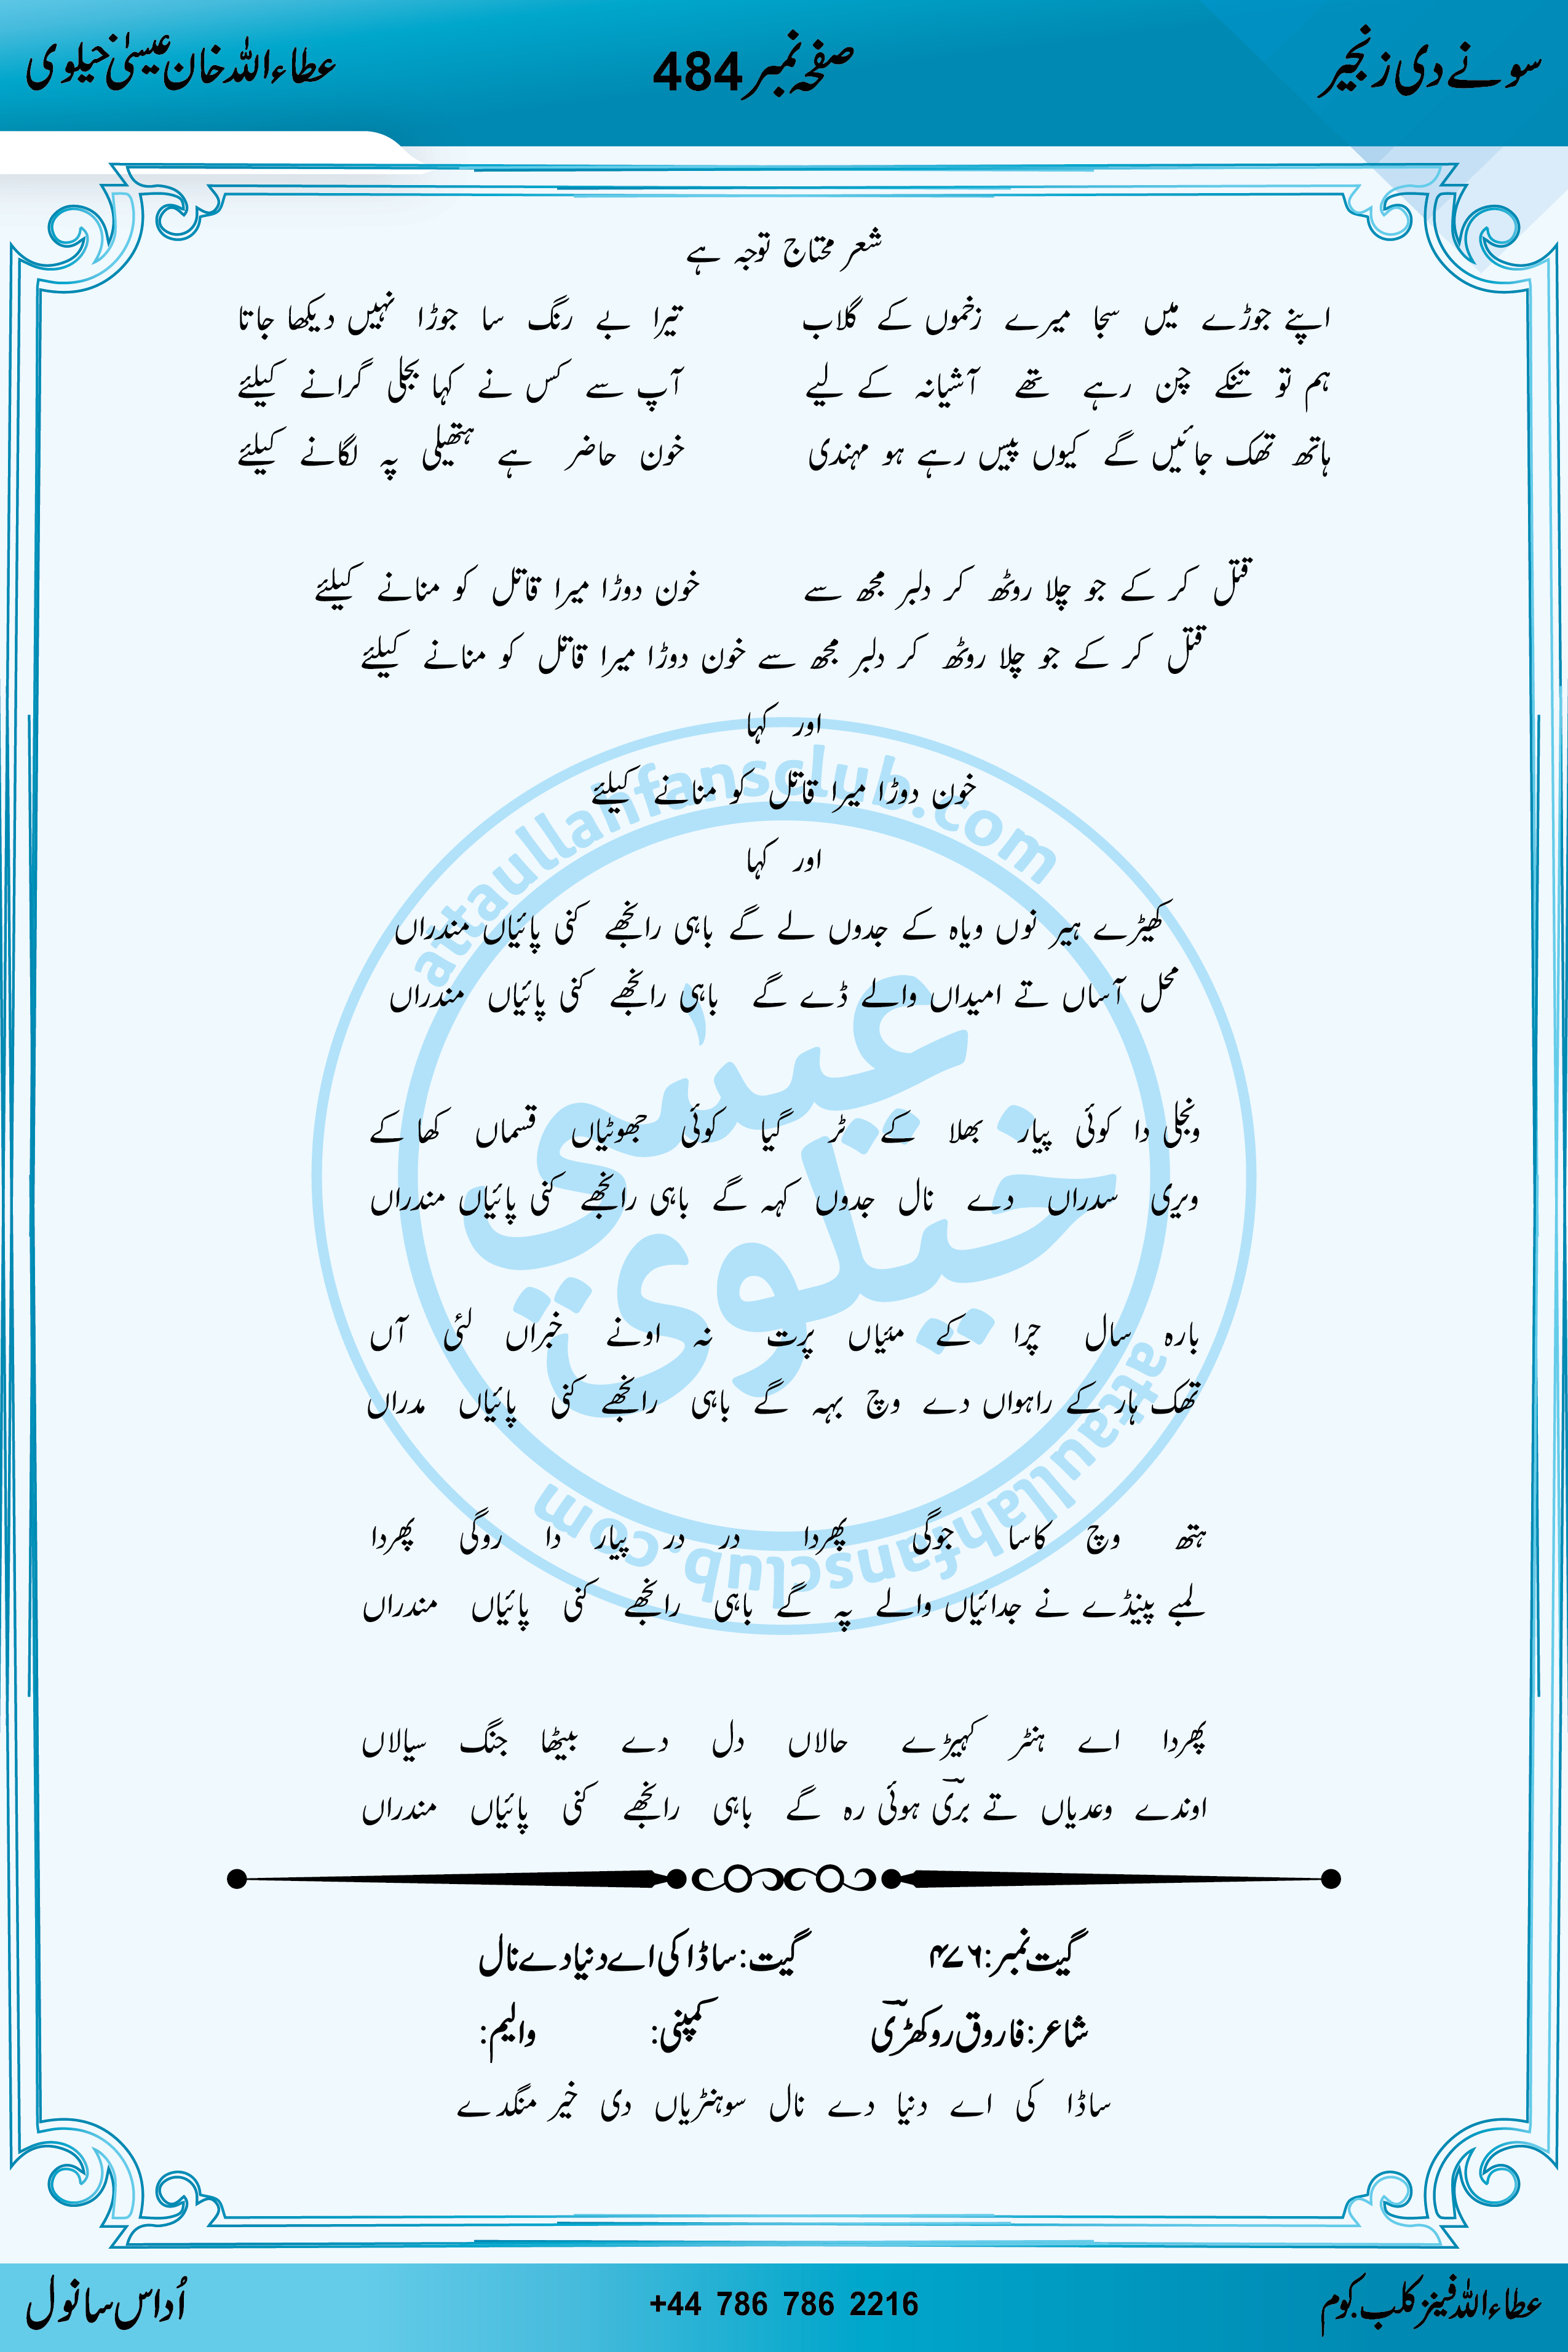 سونے دی زنجیر صفحہ نمبر 484 عطاء اللہ خان عیسیٰ خیلوی
شعر محتاج توجہ ہے
اپنے جوڑے میں سجا میرے زخموں کے گلاب تیرا بے رنگ سا جوڑا نہیں دیکھا جاتا
ہم تو تنکے چن رہے تھے آشیانہ کے لیے آپ سے کس نے کہا بجلی گرانے کیلئے
ہاتھ تھک جائیں گے کیوں پیس رہے ہو مہندی خون حاضر ہے ہتھیلی پہ لگانے کیلئے
قتل کر کے جو چلا روٹھ کر دلبر مجھ سے خون دوڑا میرا قاتل کو منانے کیلئے
قتل کر کے جو چلا روٹھ کر دلبر مجھ سے خون دوڑا میرا قاتل کو منانے کیلئے
اور کہا
خون دوڑا میرا قاتل کو منانے کیلئے
اور کہا
کھیڑے ہیر نوں ویاہ کے جدوں لے گے باہی رانجھے کنی پائیاں مندراں
محل آساں تے امیداں والے ڈے گے باہی رانجھے کنی پائیاں مندراں
ونجلی دا کوئی پیار بھلا کے ٹر گیا کوئی جھوٹیاں قسماں کھا کے
ویری سدراں دے نال جدوں کہہ گے باہی رانجھے کنی پائیاں مندراں
بارہ سال چرا کے مئیاں پرت نہ اونے خبراں لئی آں
تھک ہار کے راہواں دے وچ بہہ گے باہی رانجھے کنی پائیاں مدراں
ہتھ وچ کاسا جوگی پھردا در در پیار دا روگی پھردا
لمبے پینڈے نے جدائیاں والے پہ گے باہی رانجھے کنی پائیاں مندراں
پھردا اے ہنٹر کہیڑے حالاں دل دے بیٹھا جنگ سیالاں
اوندے وعدیاں تے بریؔ ہوئی رہ گے باہی رانجھے کنی پائیاں مندراں
گیت نمبر: ۴۷۶ گیت: ساڈا کی اے دنیا دے نال
شاعر: فاروق روکھڑیؔ کمپنی: والیم:
ساڈا کی اے دنیا دے نال سوہنٹریاں دی خیر منگدے
عطاء اللہ فینز کلب.کوم +44 786 786 2216 اُداس سانول
attaullahfansclub.com
عیسٰی
خیلوی
attaullahfansclub.com